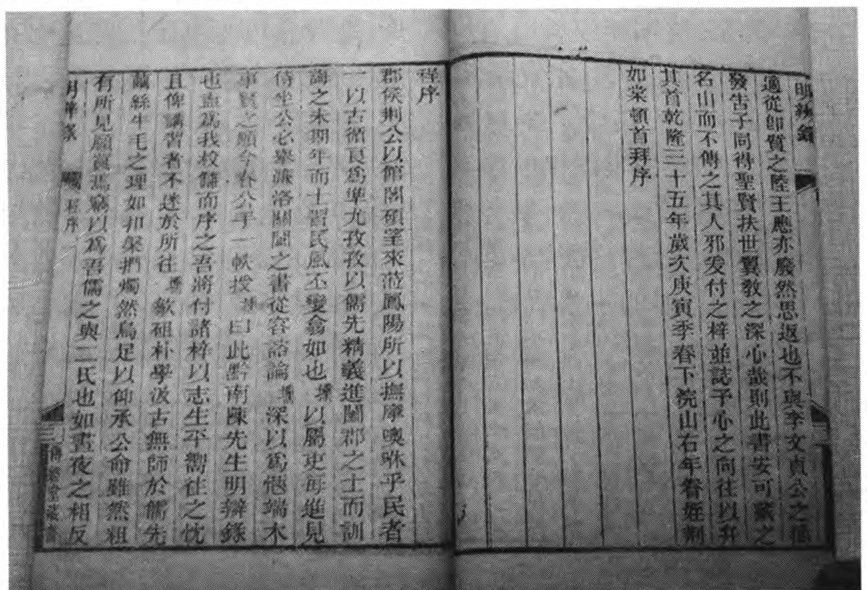 明辨錄
適從即質之陸王應亦廢然思返也不與李文貞公之
發告子同得聖賢扶世翼教之深心哉則此書安可藏之
名山而不傳之其人邪爰付之梓並誌予心之向往以弁
其首乾隆三十五年歲次庚寅季春下浣山右年眷姪荊
如棠頓首拜序
程序
郡侯荊公以館閣碩望來蒞鳳陽所以撫摩噢咻乎民者
一以古循良爲準尤孜孜以儒先精義進闔郡之士而訓
誨之未期年而士習民風丕變翕如也 以屬吏每進見
侍坐公必舉濂洛關閩之書從容諮論 深以爲愜端木
事賢之願今春公手一帙授 曰此黔南陳先生明辨錄
也盍爲我校讎而序之吾將付諸梓以志生平嚮往之忱
且俾講習者不迷於所往 欲砠朴學汲古無師於儒先
繭絲牛毛之理如扣槃捫燭然烏足以仰承公命雖然粗
有所見願質焉竊以爲吾儒之與二氏也如晝夜之相反
明辨錄 程序